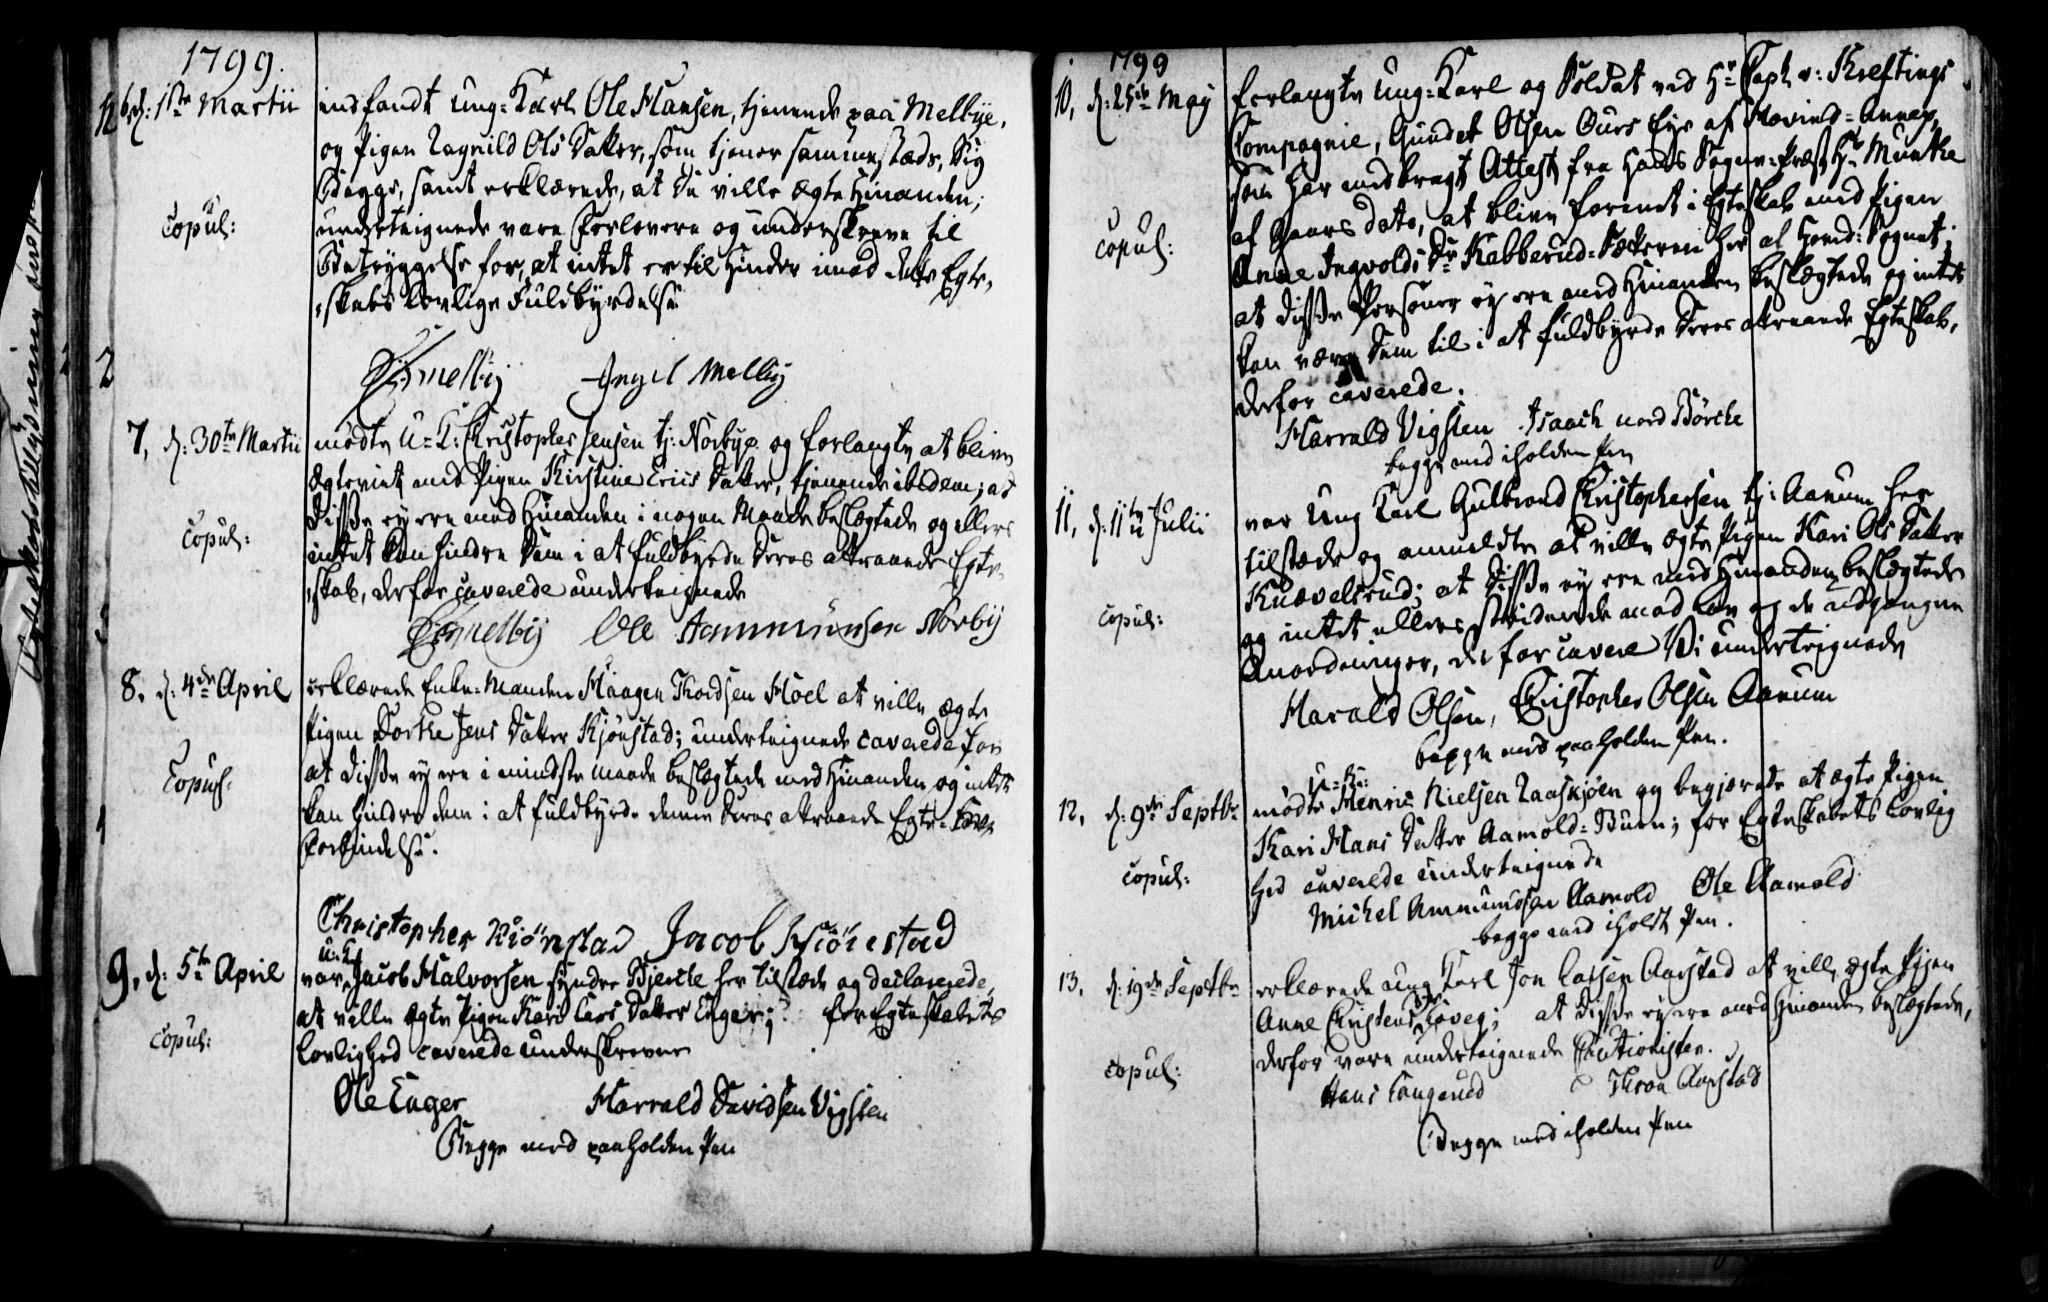 1799.
6, d: 1ste Martii indfandt Ung-Karl Ole Hansen, tjenende paa Melbye,
og Pigen Ragnild Ols Datter, som tjener sammestæds, Sig
Begge, samt erklærede, at De ville ægte Hinanden;
Copul:
undertegnede vare Forlovere og underskreve til
Betryggelse for, at intet er til Hinder imod dette Egte-
skabs lovlige Fuldbyrdelse
Melbÿ Engel Melbÿ
7, d: 30te Martii mødte U-K: Christopher Jensen tj: Norbye og forlangte at blive
ægteviet med Pigen Kirstine Erics Datter, tjenende ibidem; at
Disse ey ere med Hinanden i nogen Maade beslægtede og ellers
Copul:
intet kan hindre Dem i at fuldbyrde Deres attraaende Egte-
skab, derfor caverede undertegnede
Melbÿ Ole Ammunsen Norbÿ
8, d: 4de April erklærede Enke-Manden Haagen Thordsen Hoel at ville ægte
Pigen Dorthe Jens Datter Kjønstad; undertegnede caverede for
at Disse ey ere i mindste maade beslægtede med Hinanden og intet
Copul:
kan hindre dem i at fuldbyrde denne Deres attraaede Egte-
Forbindelse.
Christopher Kiönstad Jacob Kiönestad
U-K
9, d: 5te April var Jacob Halvorsen Søndre Bjercke her tilstæde og declarerede,
at ville ægte Pigen Kari Lars Datter Enger; for Egteskabets
Copul:
Lovlighed caverede underskrevne
Ole Enger Harrald Davidsen Vigsten
Begge med paaholden Pen
1799
10, d: 25de May forlangte Ung-Karl og Soldat ved Hr Capt. v: Kreftings
Compagnie, Gundet Olsen Ours Eye af Hovind-Annex,
som har medbragt Attest fra Hans Sogne-Præst Hr Munthe
af Gaars dato, at blive forenet i Egteskab med Pigen
Copul:
Anne Ingvolds Dr Kabberud- her af Hoved-Sognet;
at disse Personer ey ere med Hinanden beslægtede og intet
kan være Dem til i at fuldbyrde Deres attraaende Egteskab,
derfor caverede.
Harrald Vigsten Isaach nord Börcke
begge med iholden Pen
11, d: 11te Julii var Ung Karl Gulbrand Christophersen tj: Aanum her
tilstæde og anmeldte at ville ægte Pigen Kari Ols Datter
Knævelsrud; at Disse ey ere med Hinanden beslægtede
Copul:
og intet ellers stridende mod Lov og de udgangne
Anordninger, derfor cavere Vi undertegnede
Harald Olsen, Christopher Olsen Aanum
begge med paaholden Pen.
U-K:
12, d: 9de Septbr mødte Henric Nielsen Raaskjøen og begjærede at ægte Pigen
Kari Hans Datter Aamold-Buen; for Egteskabets Lovlig
Copul:
hed caverede undertegnede
Michel Ammundsen Aamold Ole Aamold
begge med iholdt Pen.
13, d: 19de Septbr erklærede ung Karl Jon Larsen Aarstad at ville ægte Pigen
Anne Christens Dr; at disse ey ere med Hinanden beslægtede,
derfor vare undertegnede Cautionister.
Copul:
Hans Langerud Thron Aarstad
Begge med iholden Pen